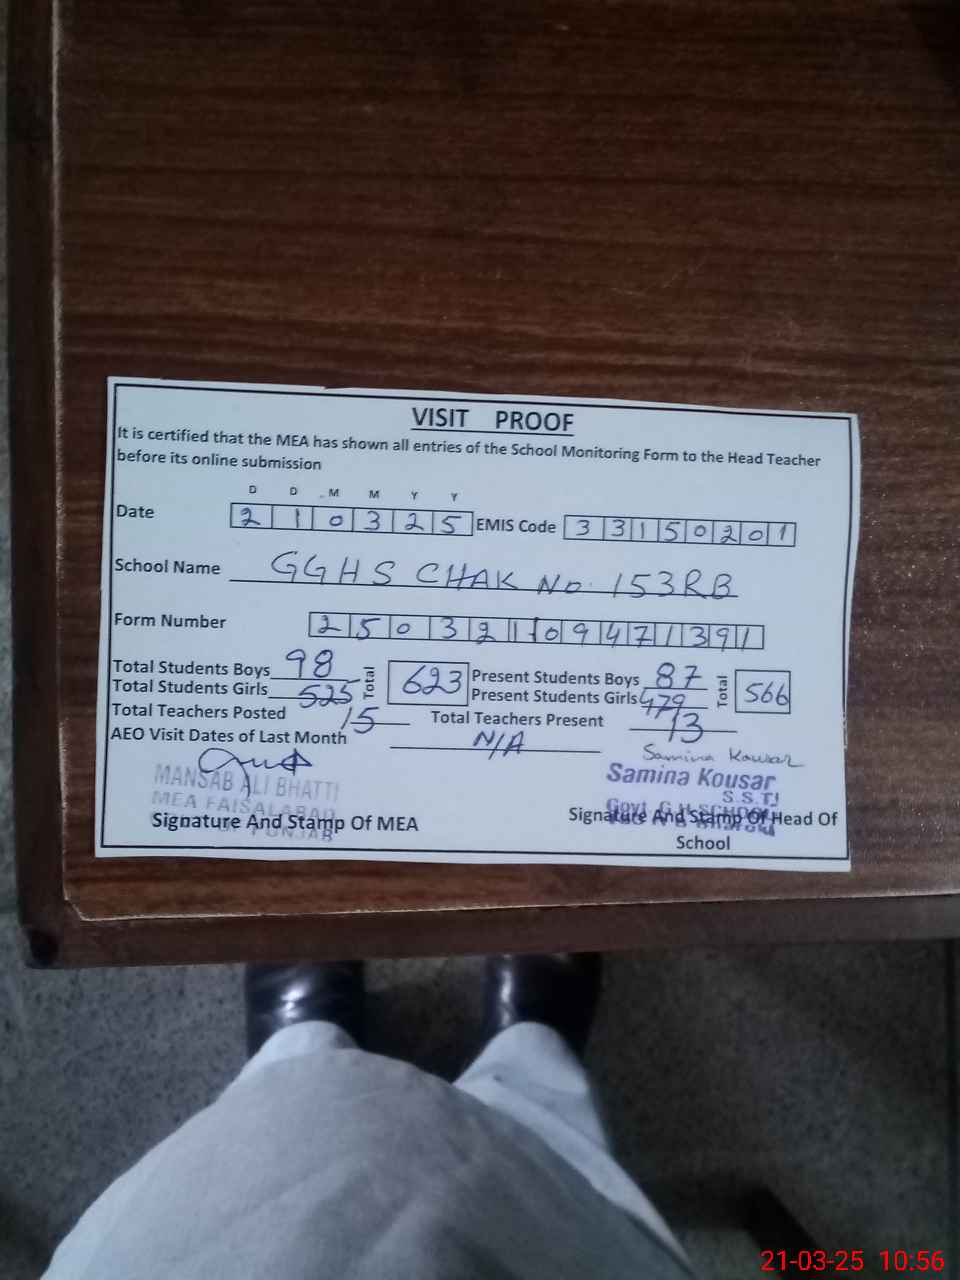 VISIT PROOF
It is certified that the MEA has shown all entries of the School Monitoring Form to the Head Teacher
before its online submission
D D M M Y Y
Date 2 1 0 3 2 5 EMIS Code 3 3 1 5 0 2 0 1
School Name GGHS CHAK No. 153RB
Form Number 2 5 0 3 2 1 1 0 9 4 7 1 3 9 1
Total Students Boys 98 Total 623 Present Students Boys 87 Total 566
Total Students Girls 525 Present Students Girls 479
Total Teachers Posted 15 Total Teachers Present 13
AEO Visit Dates of Last Month N/A
Samina Kousar
MANSAB ALI BHATTI Samina Kousar
MEA FAISALABAD S.S.T
Signature And Stamp Of MEA Signature And Stamp Of Head Of
School
PUNJAB
Govt. G.H. SCHOOL
21-03-25 10:56